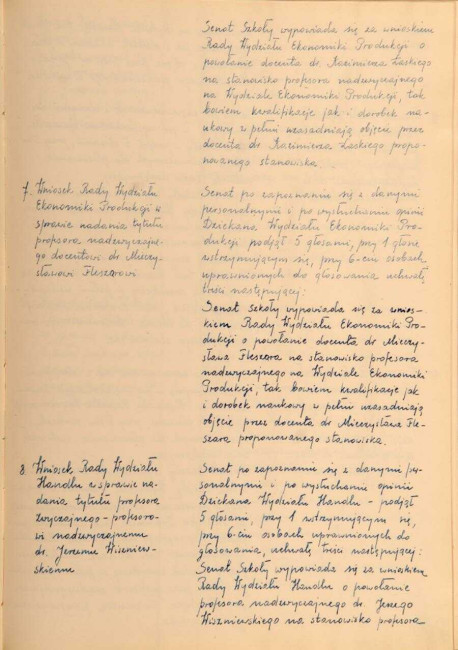 Senat Szkoły wypowiada się za wnioskiem
Rady Wydziału Ekonomiki Produkcji o
powołanie docenta dr. Kazimierza Łaskiego
na stanowisko profesora nadzwyczajnego
na Wydziale Ekonomiki Produkcji, tak
bowiem kwalifikacje jak i dorobek na-
ukowy w pełni uzasadniają objęcie przez
docenta dr Kazimierza Łaskiego propo-
nowanego stanowiska.
7. Wniosek Rady Wydziału
Ekonomiki Produkcji w
sprawie nadania tytułu
profesora nadzwyczajne-
go docentowi dr Mieczy-
sławowi Fleszarowi
Senat po zapoznaniu się z danymi
personalnymi i po wysłuchaniu opinii
Dziekana Wydziału Ekonomiki Pro-
dukcji podjął 5 głosami, przy 1 głosie
wstrzymującym się, przy 6-ciu osobach
uprawnionych do głosowania uchwałę
treści następującej:
Senat Szkoły wypowiada się za wnios-
kiem Rady Wydziału Ekonomiki Pro-
dukcji o powołanie docenta dr Mieczy-
sława Fleszara na stanowisko profesora
nadzwyczajnego na Wydziale Ekonomiki
Produkcji, tak bowiem kwalifikacje jak
i dorobek naukowy w pełni uzasadniają
objęcie przez docenta dr Mieczysława Fle-
szara proponowanego stanowiska.
8. Wniosek Rady Wydziału
Handlu w sprawie na-
dania tytułu profesora
zwyczajnego - profesoro-
wi nadzwyczajnemu
dr. Jerzemu Wiszniew-
skiemu
Senat po zapoznaniu się z danymi per-
sonalnymi i po wysłuchaniu opinii
Dziekana Wydziału Handlu - podjął
5 głosami, przy 1 wstrzymującym się,
przy 6-ciu osobach uprawnionych do
głosowania, uchwałę treści następującej:
Senat Szkoły wypowiada się za wnioskiem
Rady Wydziału Handlu o powołanie
profesora nadzwyczajnego dr. Jerzego
Wiszniewskiego na stanowisko profesora